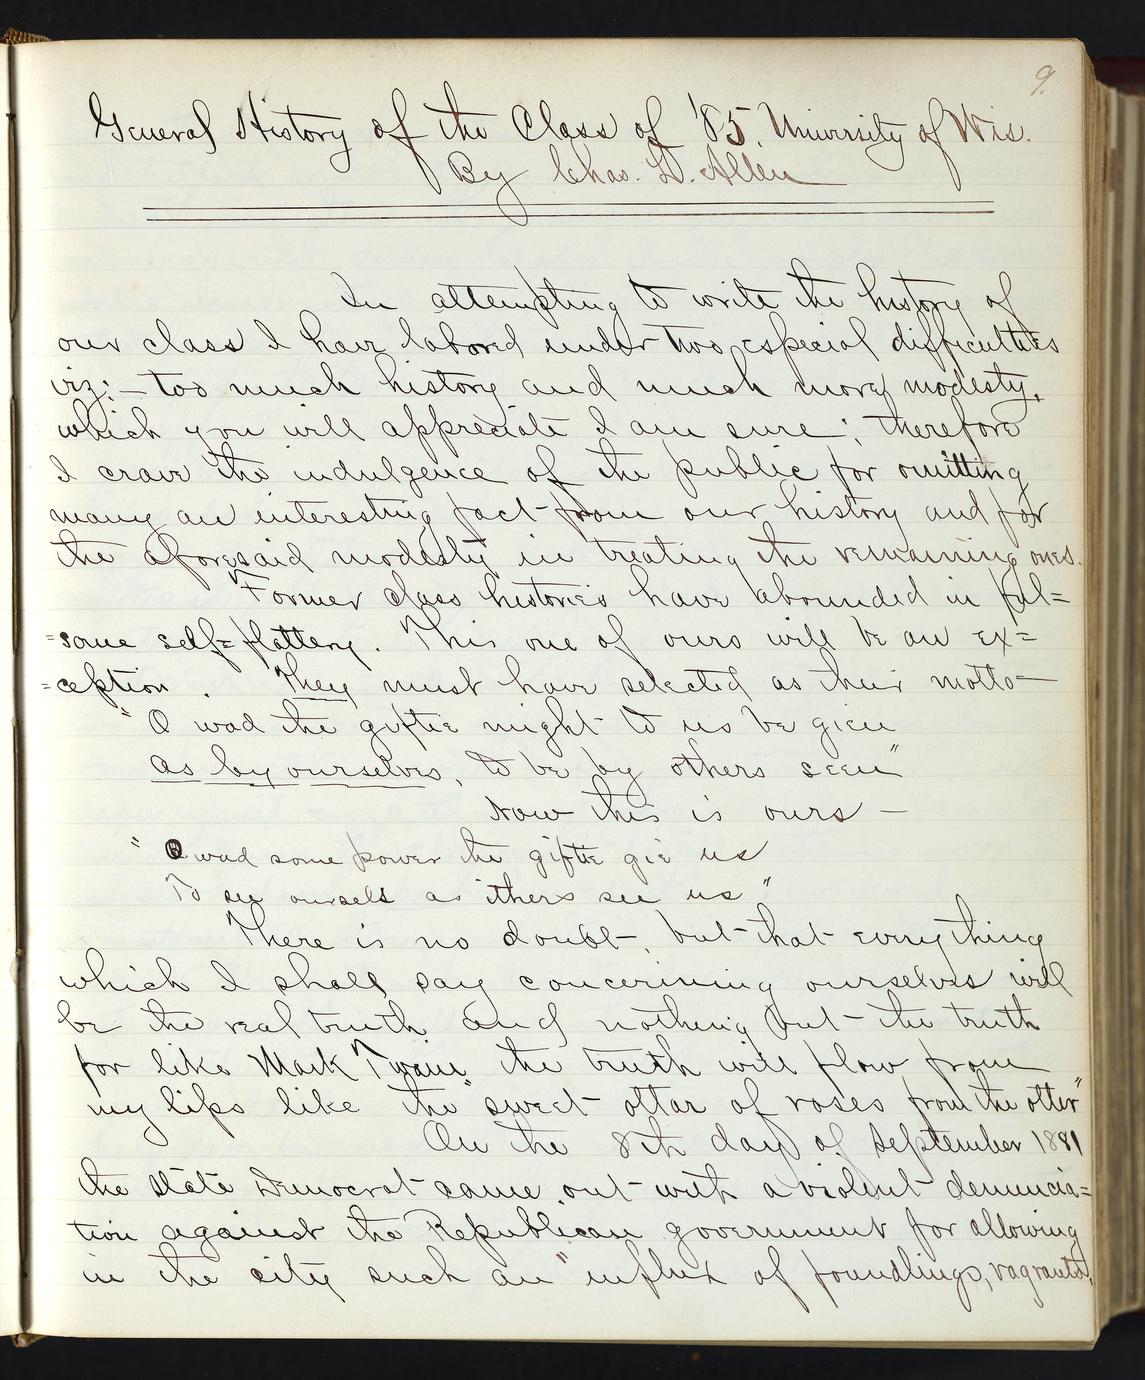 9.
General History of the Class of '85. University of Wis.
By Chas. L. Allen
In attempting to write the history of
our class I have labored under two especial difficulties
viz:— too much history and much more modesty,
which you will appreciate I am sure; therefore
I crave the indulgence of the public for omitting
many an interesting fact from our history and for
the aforesaid modesty in treating the remaining ones.
Former class histories have abounded in ful=
=some self=flattery. This one of ours will be an ex=
=ception. They must have selected as their motto—
"O wad the giftie might to us be gien
As by ourselves, to be by others seen"
Now this is ours —
"O wad some power the giftie gie us
To see oursels as ithers see us"
There is no doubt, but that everything
which I shall say concerning ourselves will
be the real truth and nothing but the truth
for like Mark Twain "the truth will flow from
my lips like the sweet ottar of roses from the otter"
On the 8th day of September 1881
the State Democrat came out with a violent denuncia=
tion against the Republican government for allowing
in the city such an "influx of foundlings, vagrants,